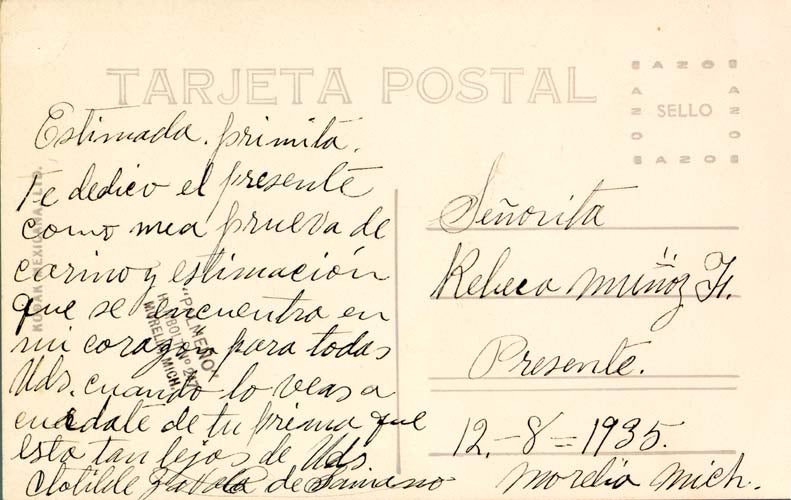 TARJETA POSTAL
AZO
SELLO
Estimada. primita.
Te dedico el presente
como mea prueva de
carino y estimación
que se encuentra en
mi corazon para todas
Uds. cuando lo veas a
cuerdate de tu prima que
esta tan lejos de Uds
Clotilde Zavala de
KODAK MEXICANA, LTD.
"PALMEÑO"
MORELIA MICH.
Señorita
Rebeca Muñoz
Presente.
12.-8-=1935.
Morelia Mich.